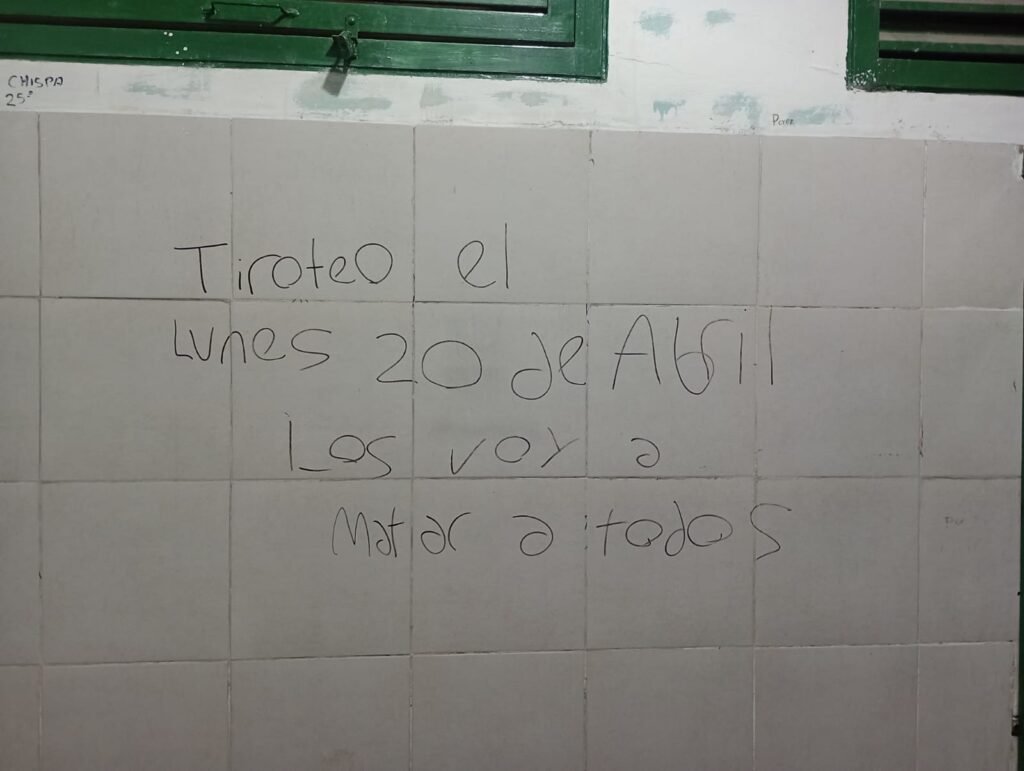 CHISPA
25°
Perez
Tiroteo el
Lunes 20 de Abril
Los voy a
Matar a todos